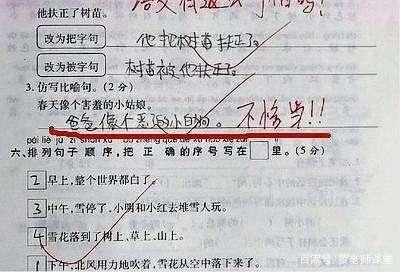 他扶正了树苗。
改为把字句 他把树苗扶正了。
改为被字句 树苗被他扶正了。
3. 仿写比喻句。(2 分)
春天像个害羞的小姑娘。
爸爸像个 的小白狗。 不恰当!!
六、排列句子顺序,把正确的序号写在□里。(5 分)
2 早上,整个世界都白了。
3 中午,雪停了,小明和小红去堆雪人玩。
4 雪花落到了树上、草上、山上。
1 下午,北风用力地吹着,雪花从空中落下来了。
百家号/罗老师课堂